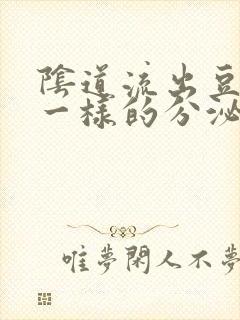 陰道流出豆
一樣的分泌
唯夢閑人不夢